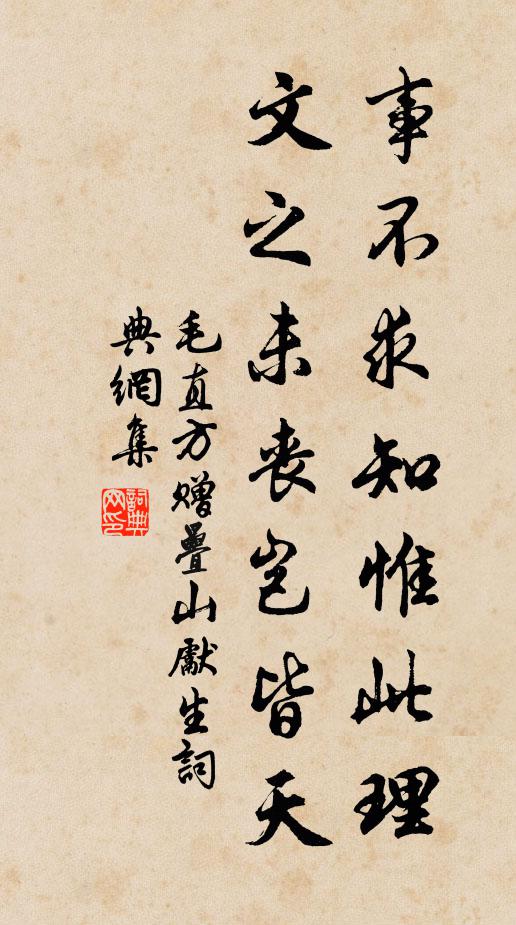 事不求知惟此理
文之未丧岂皆天
毛直方赠疊山獻生詞
典網集
詞典网印